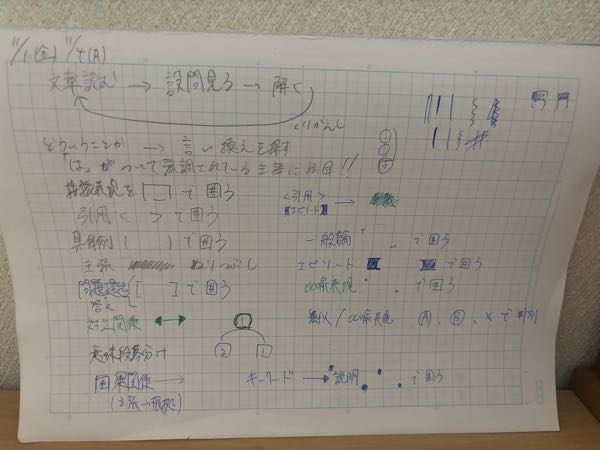 11/1(金) 11/4(月)
文章読む → 設問見る → 解く
くりかえし
どういうことか → 言い換えを探す
「は」がついて強調されている主語に注目!!
接続表現を［ ］で囲う
引用 < > で囲う
具体例 ( ) で囲う
主張 ぬりつぶし
問題提起 [ ] で囲う
答え
対立関係 ↔
意味段落分け
1
2 1
因果関係 →
(主張→根拠)
<引用>
エピソード →
一般論「 」で囲う
エピソード で囲う
比喩表現 で囲う
/比喩表現 Ⓐ、Ⓑ、×で
キーワード → 説明 で囲う